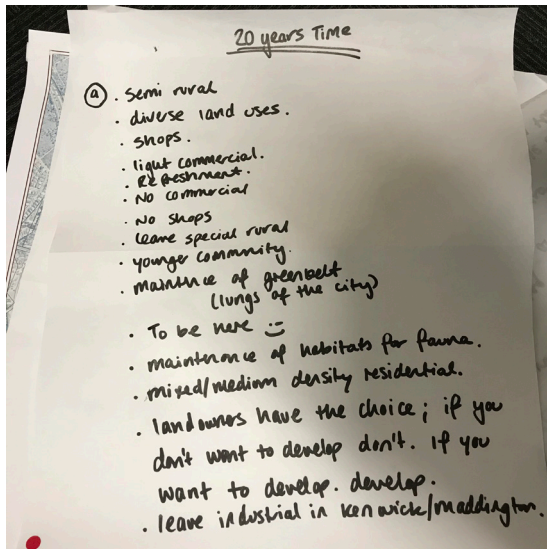 20 years Time
ⓐ . semi rural
. diverse land uses.
. shops.
. light commercial.
. Refreshment.
. No commercial
. No shops
. leave special rural
. younger community.
. maintnce of greenbelt
(lungs of the city)
. To be here
. maintenance of habitats for fauna.
. mixed/medium density residential.
. landowners have the choice; if you
don't want to develop don't. If you
want to develop. develop.
. leave industrial in Kenwick/maddington.